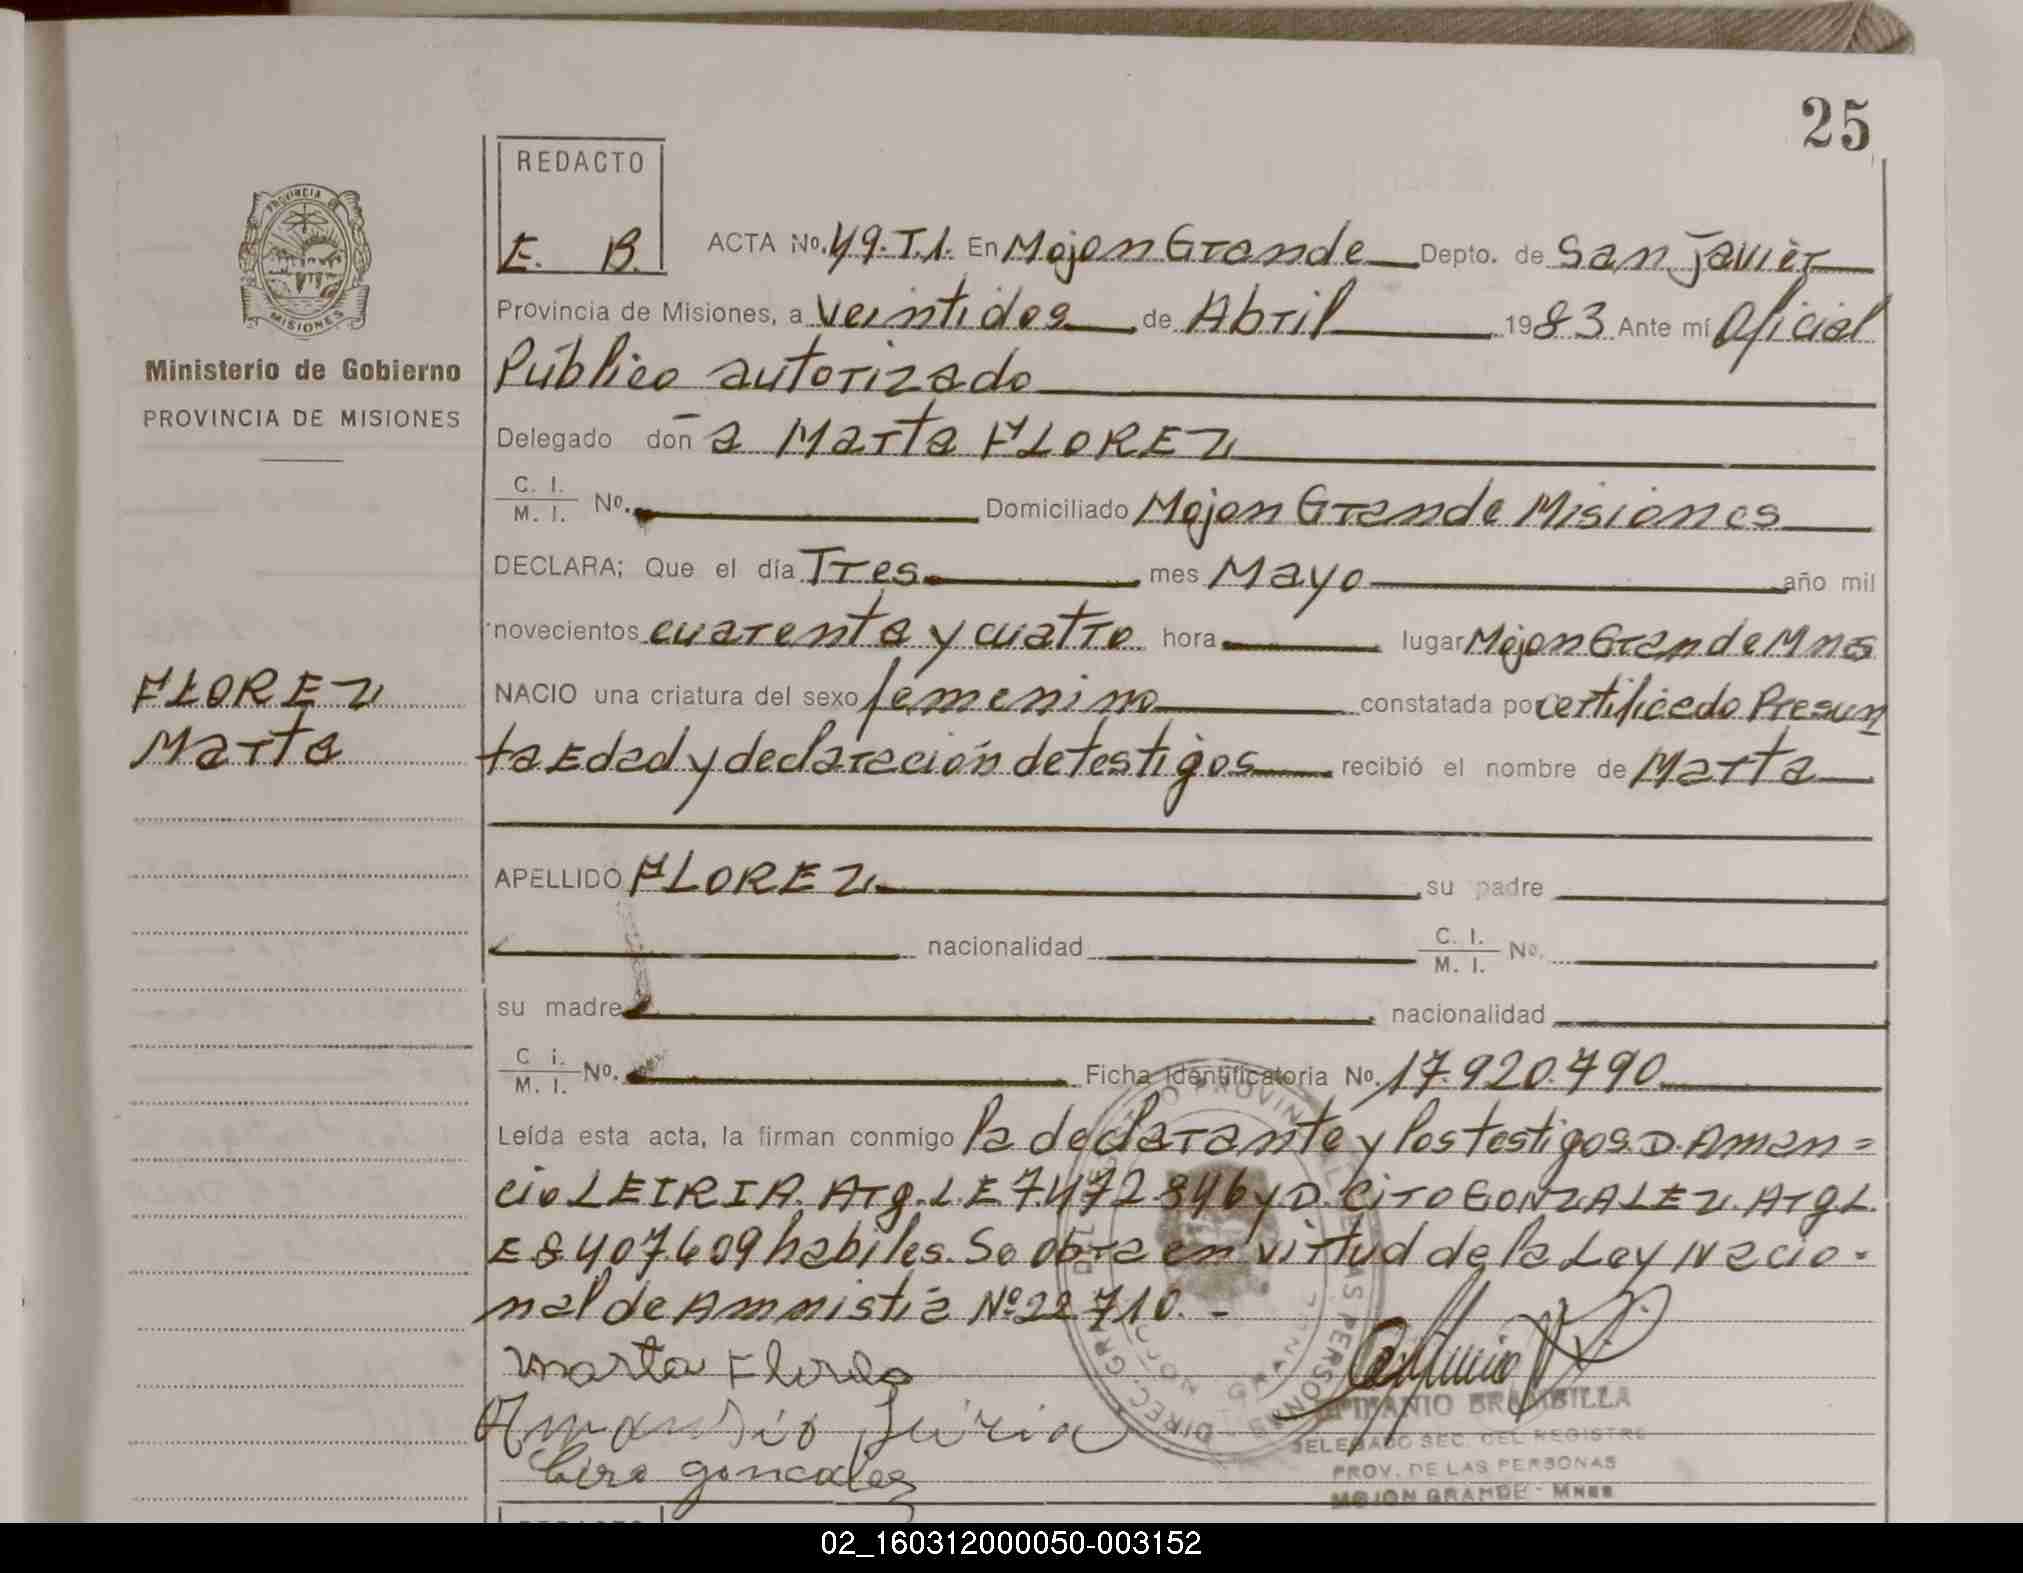 25
REDACTO
E. B.
PROVINCIA DE
MISIONES
Ministerio de Gobierno
PROVINCIA DE MISIONES
ACTA No. 49.T.1. En Mojon Grande Depto. de San Javier
Provincia de Misiones, a veintidos de Abril 1983 Ante mí Oficial
Público autorizado
Delegado don̄ a Marta FLOREZ
C. I. / M. I. No. Domiciliado Mojon Grande Misiones
DECLARA; Que el día Tres mes Mayo año mil
novecientos cuarenta y cuatro hora lugar Mojon Grande Mnes
FLOREZ
Marta
NACIO una criatura del sexo femenino constatada por certificado Presun
ta Edad y declaración de testigos recibió el nombre de Marta
APELLIDO FLOREZ su padre
nacionalidad C. I. / M. I. No.
su madre nacionalidad
C i. / M. I. No. Ficha Identificatoria No. 17.920.790
Leída esta acta, la firman conmigo la declarante y los testigos D. Aman=
cio LEIRIA. Arg. L.E 7.472.846 y D. CITO GONZALEZ. Arg L.
E 8407609 habiles. Se obra en virtud de la Ley Nacio-
nal de Amnistía Nº 22710.-
Marta Florez
Amansio Leiria
Ciro goncalez
EPIFANIO BRAMBILLA
DELEGADO SEC. DEL REGISTRO
PROV. DE LAS PERSONAS
MOJON GRANDE - MNES
REDACTO
02_160312000050-003152